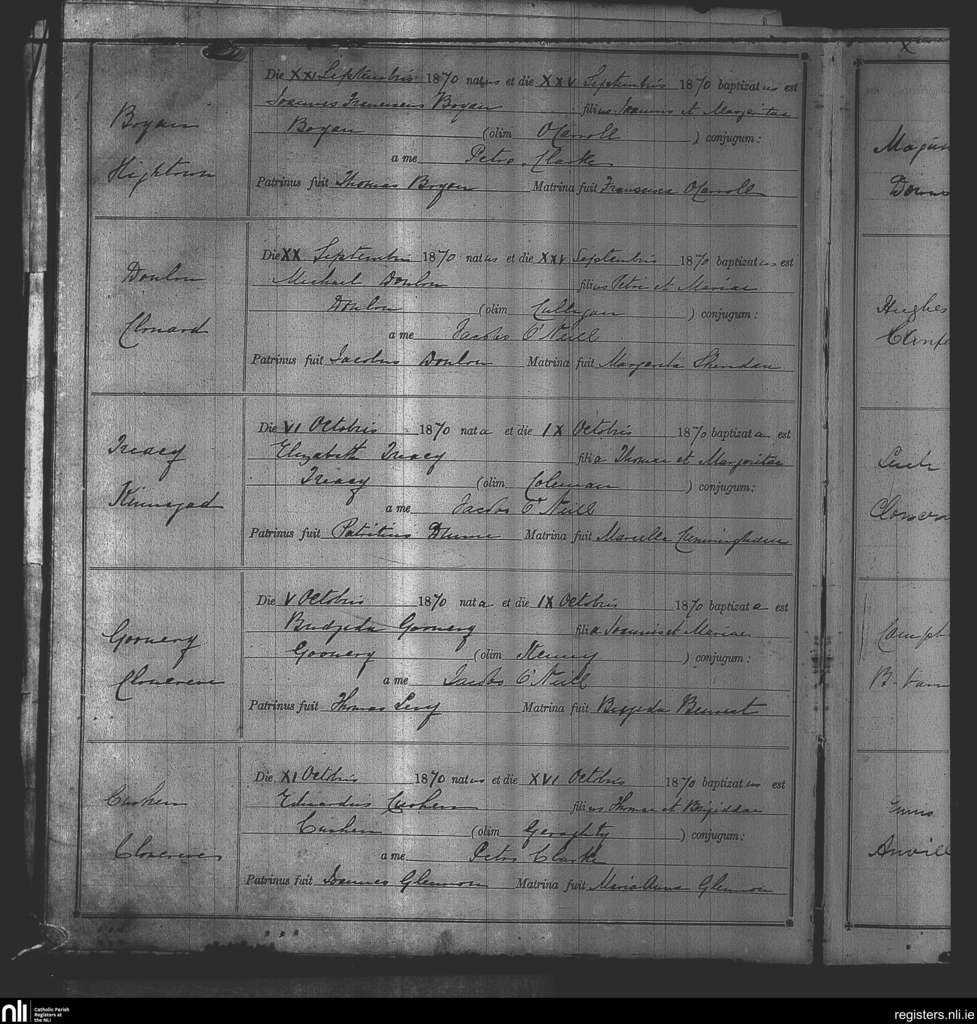 Bogan
Hightown
Die XXI Septembris 1870 natus et die XXV Septembris 1870 baptizatus est
Joannes Franciscus Bogan filius Joannis et Margaritae
Bogan (olim O'Carroll ) conjugum:
a me Petro Clarke
Patrinus fuit Thomas Bogan Matrina fuit Francisca O'Carroll
Donlon
Clonard
Die XX Septembris 1870 natus et die XXV Septembris 1870 baptizatus est
Michael Donlon filius Petri et Mariae
Donlon (olim Culligan ) conjugum:
a me Jacobo O'Neill
Patrinus fuit Jacobus Donlon Matrina fuit Margarita Sheridan
Treacy
Kinnegad
Die VI Octobris 1870 nata et die IX Octobris 1870 baptizata est
Elizabeth Treacy filia Thomae et Margaritae
Treacy (olim Coleman ) conjugum:
a me Jacobo O'Neill
Patrinus fuit Patritius Dunne Matrina fuit Marcella
Die V Octobris 1870 nata et die IX Octobris 1870 baptizata est
filia Joannis et Mariae
(olim Kenny ) conjugum:
a me Jacobo O'Neill
Patrinus fuit Thomas Levy Matrina fuit Brigida Bennet
Cushen
Die XI Octobris 1870 natus et die XVI Octobris 1870 baptizatus est
Eduardus Cushen filius Thomae et Brigiddae
Cushen (olim Geraghty ) conjugum:
a me Petro Clarke
Patrinus fuit Joannes Glennon Matrina fuit Maria Anna Glennon
X
Hughes
nli
Catholic Parish
Registers at
the NLI
registers.nli.ie